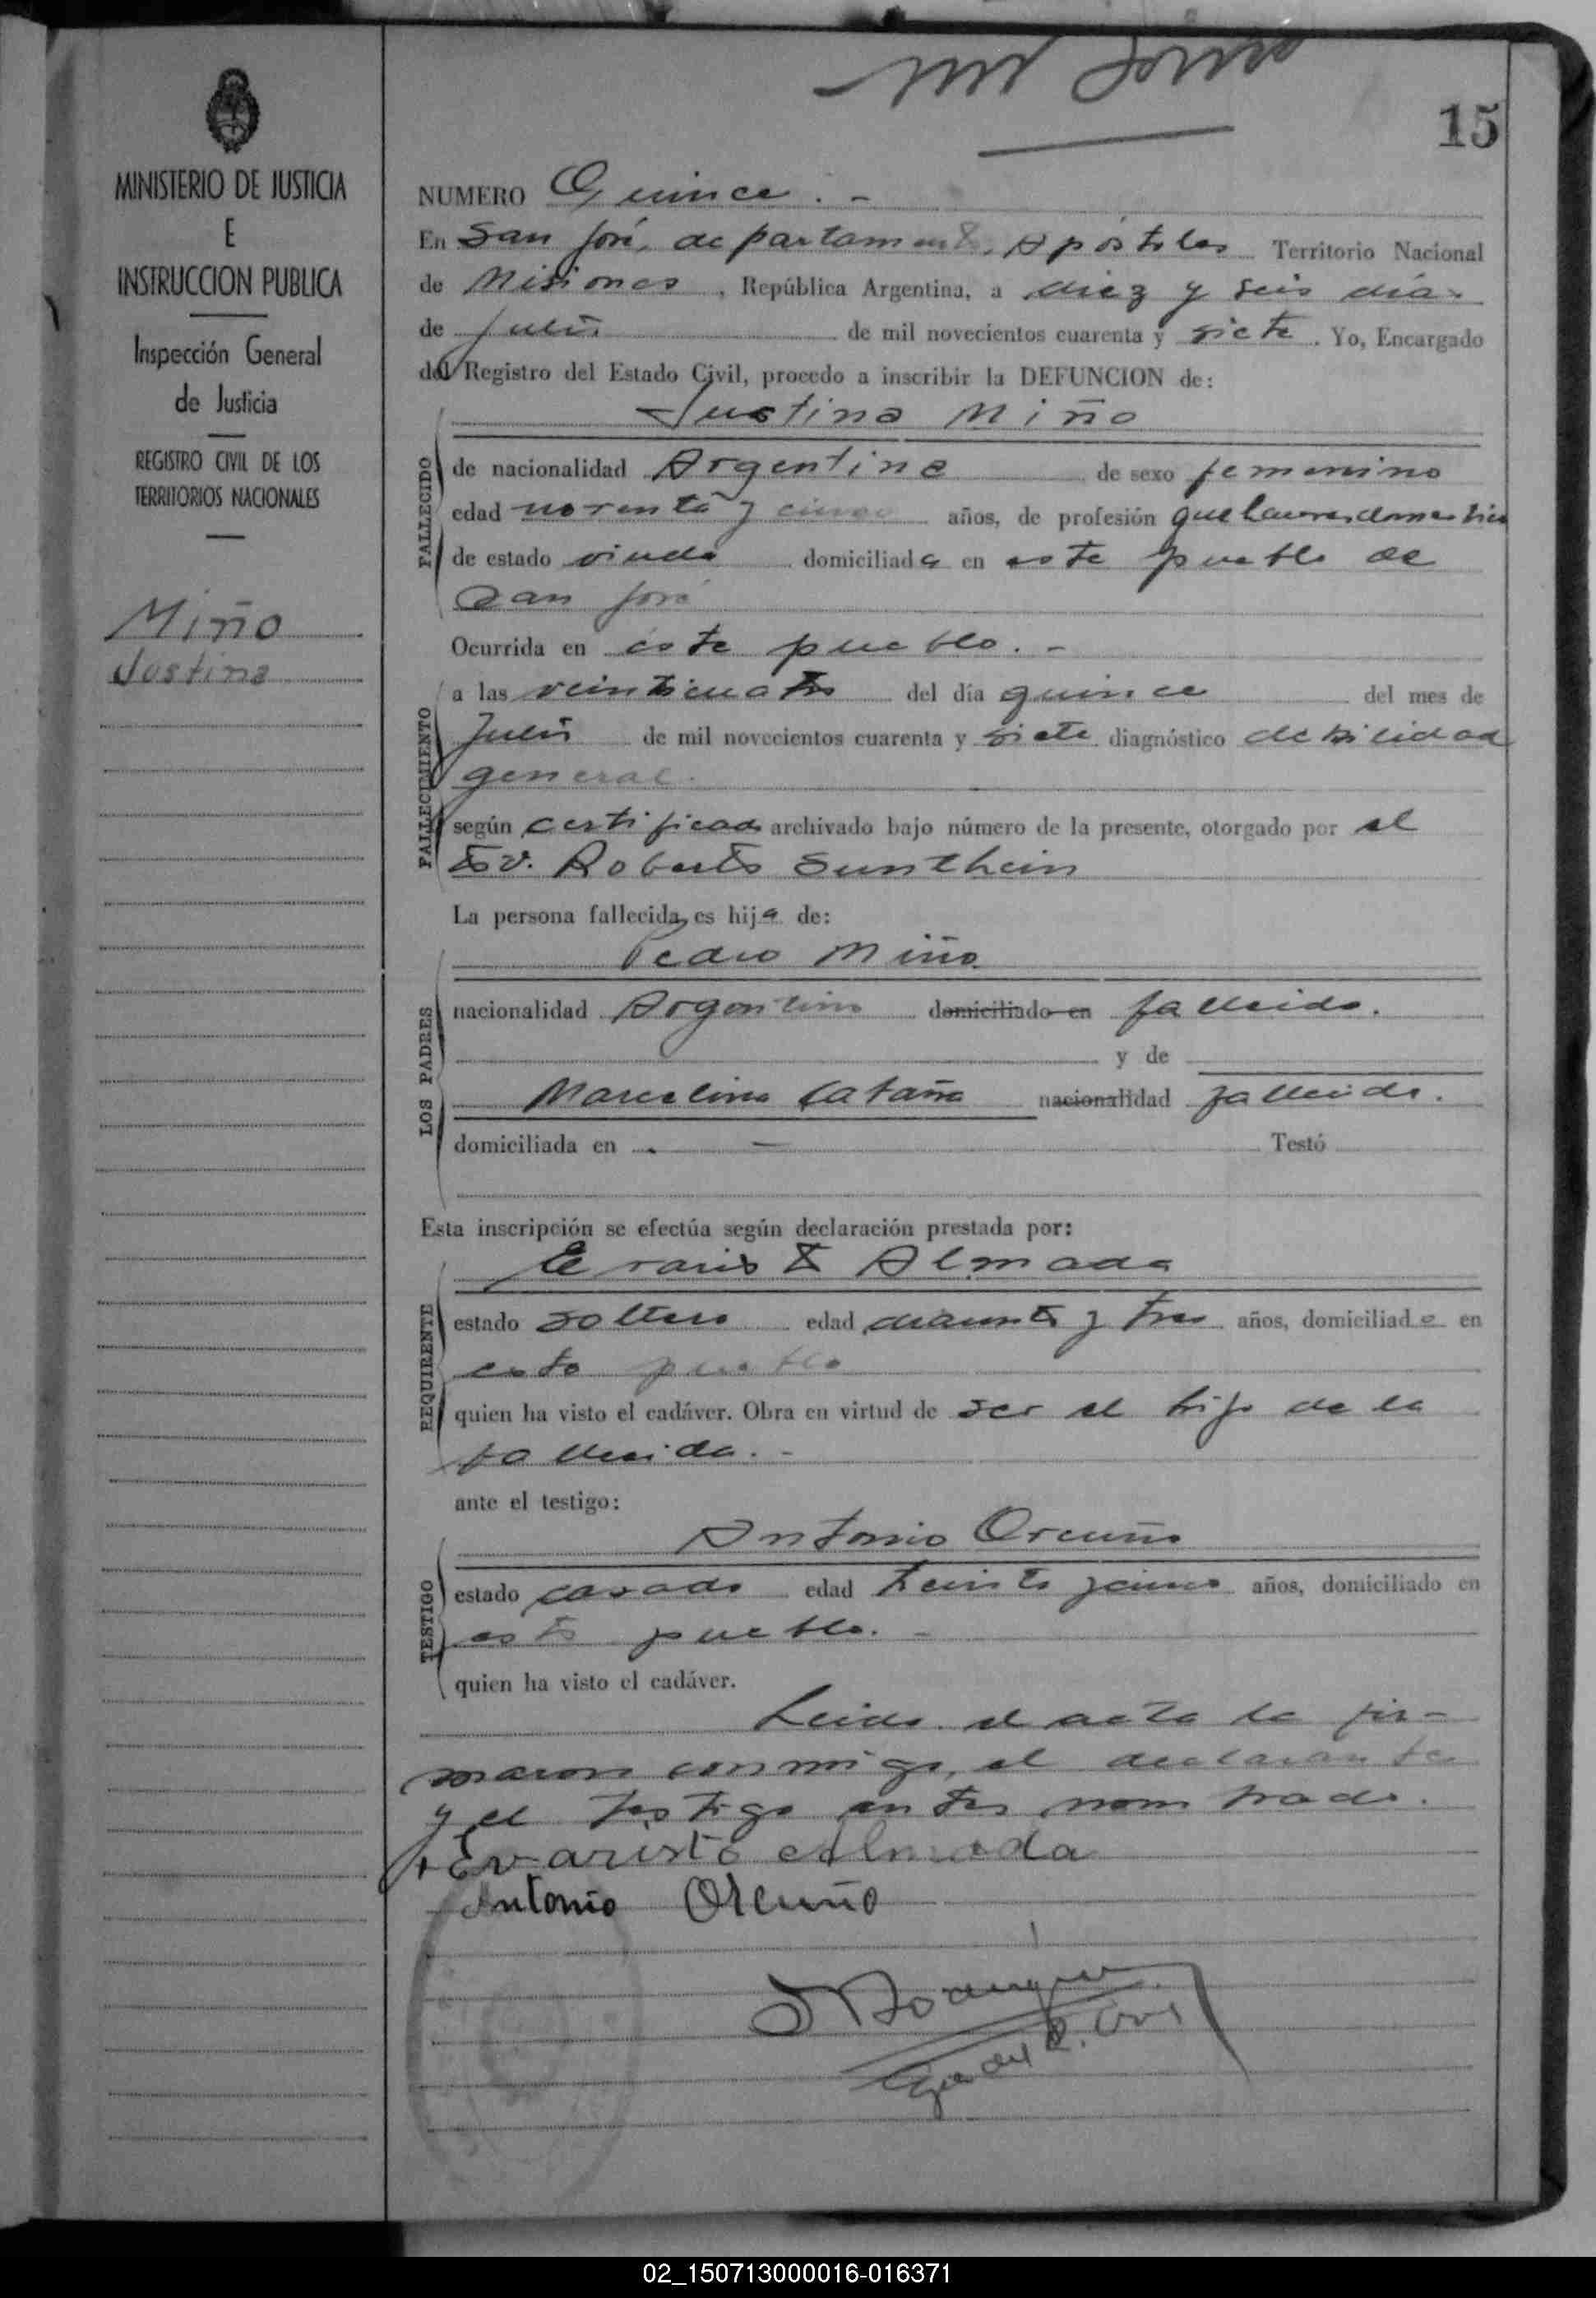 15
MINISTERIO DE JUSTICIA
E
INSTRUCCION PUBLICA
Inspección General
de Justicia
REGISTRO CIVIL DE LOS
TERRITORIOS NACIONALES
Miño
Justina
NUMERO Quince . -
En San José, departamento, Apóstoles Territorio Nacional
de Misiones , República Argentina, a diez y seis días
de Julio de mil novecientos cuarenta y siete . Yo, Encargado
del Registro del Estado Civil, procedo a inscribir la DEFUNCION de:
Justina Miño
FALLECIDO
de nacionalidad Argentina de sexo femenino
edad norenta y cinco años, de profesión domestico
de estado viuda domiciliada en este pueblo de
San José
Ocurrida en este pueblo . -
FALLECIMIENTO
a las veinticuatro del día quince del mes de
Julio de mil novecientos cuarenta y siete diagnóstico debilidad
general.
según certificado archivado bajo número de la presente, otorgado por el
Roberto Sunthein
La persona fallecida, es hija de:
LOS PADRES
Pedro Miño
nacionalidad Argentino domiciliado en fallecido.
y de
Marcelina nacionalidad fallecida.
domiciliada en . — Testó
Esta inscripción se efectúa según declaración prestada por:
REQUIRENTE
Evaristo Almada
estado soltero edad y tres años, domiciliado en
este pueblo
quien ha visto el cadáver. Obra en virtud de ser el hijo de la
fallecida. -
ante el testigo:
TESTIGO
Antonio Orcuño
estado casado edad años, domiciliado en
este pueblo. -
quien ha visto el cadáver.
Leida el acta la fir-
maron conmigo, el declarante
y el testigo antes nombrado.
Evaristo Almada
Antonio Orcuño
02_150713000016-016371